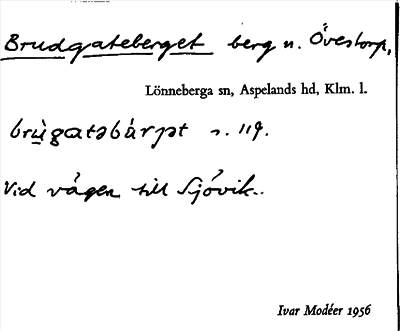 Brudgateberget berg n. Övestorp,
Lönneberga sn, Aspelands hd, Klm. l.
brùgatəbárjət n. 119.
Vid vägen till Sjövik.
Ivar Modéer 1956